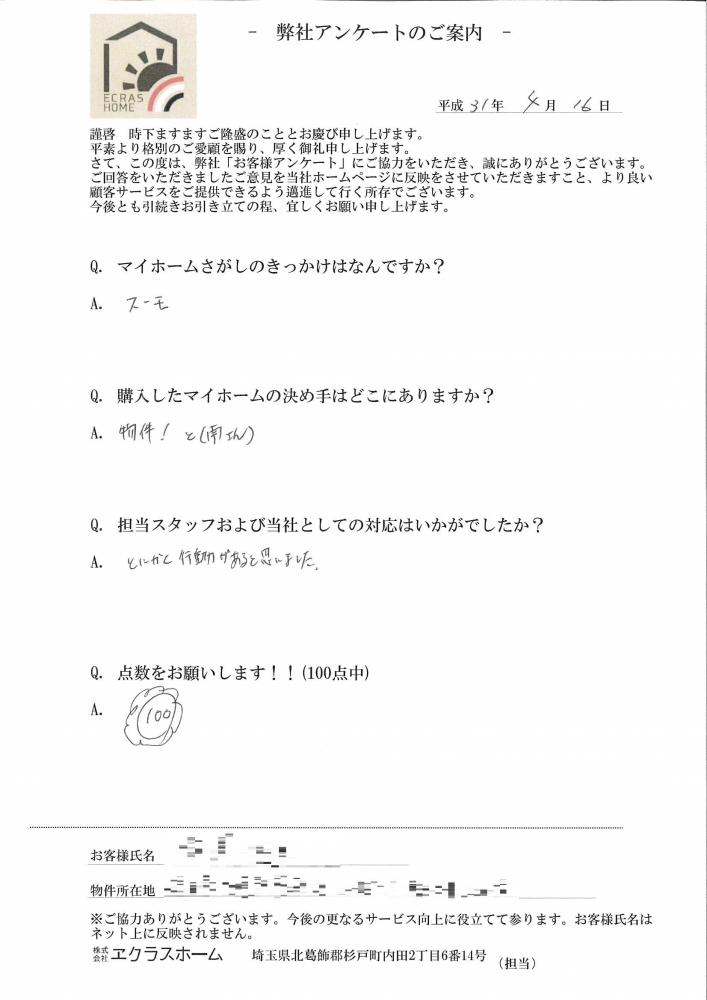 - 弊社アンケートのご案内 -
ECRAS
HOME
平成 31年 4月 16日
謹啓 時下ますますご隆盛のこととお慶び申し上げます。
平素より格別のご愛顧を賜り、厚く御礼申し上げます。
さて、この度は、弊社「お客様アンケート」にご協力をいただき、誠にありがとうございます。
ご回答をいただきましたご意見を当社ホームページに反映をさせていただきますこと、より良い
顧客サービスをご提供できるよう邁進して行く所存でございます。
今後とも引続きお引き立ての程、宜しくお願い申し上げます。
Q. マイホームさがしのきっかけはなんですか？
A. スーモ
Q. 購入したマイホームの決め手はどこにありますか？
A. 物件！ と(南さん)
Q. 担当スタッフおよび当社としての対応はいかがでしたか？
A. とにかく行動力があると思いました。
Q. 点数をお願いします！！(100点中)
A. 100
お客様氏名
物件所在地
※ご協力ありがとうございます。今後の更なるサービス向上に役立てて参ります。お客様氏名は
ネット上に反映されません。
株式会社 ヱクラスホーム 埼玉県北葛飾郡杉戸町内田2丁目6番14号 (担当)